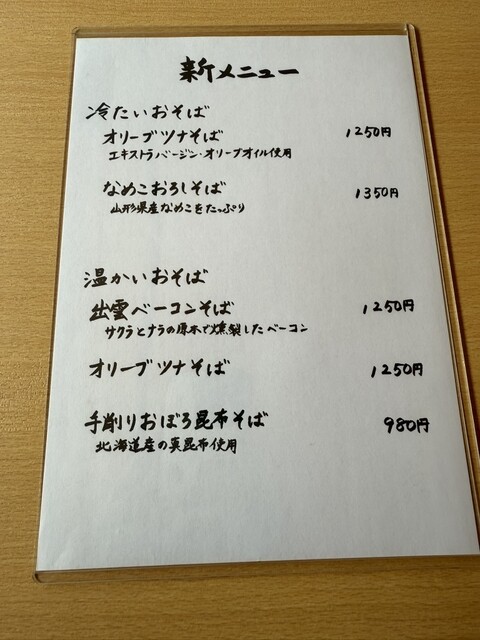 新メニュー
冷たいおそば
オリーブツナそば 1250円
エキストラバージン・オリーブオイル使用
なめこおろしそば 1350円
山形県産なめこをたっぷり
温かいおそば
出雲ベーコンそば 1250円
サクラとナラの原木で燻製したベーコン
オリーブツナそば 1250円
手削りおぼろ昆布そば 980円
北海道産の真昆布使用